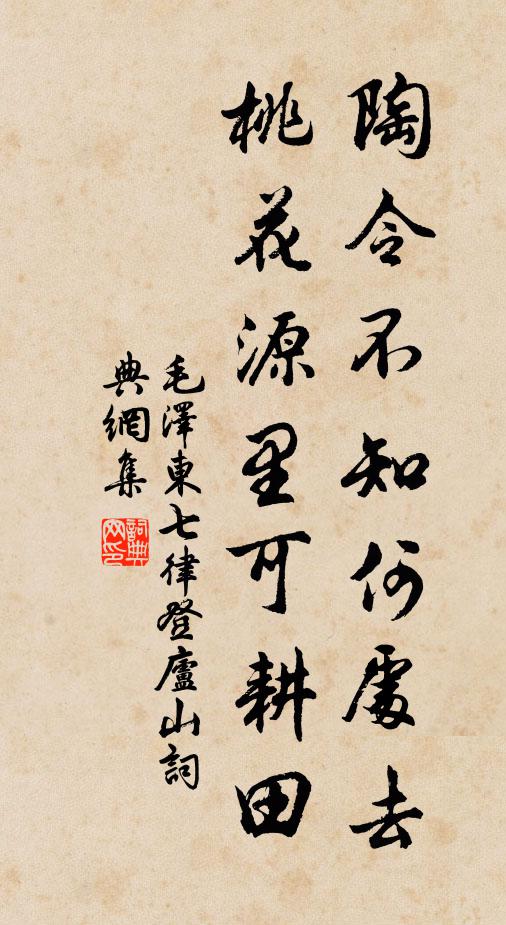 陶令不知何處去
桃花源里可耕田
毛澤東七律登廬山詞
典網集
詞典
网印